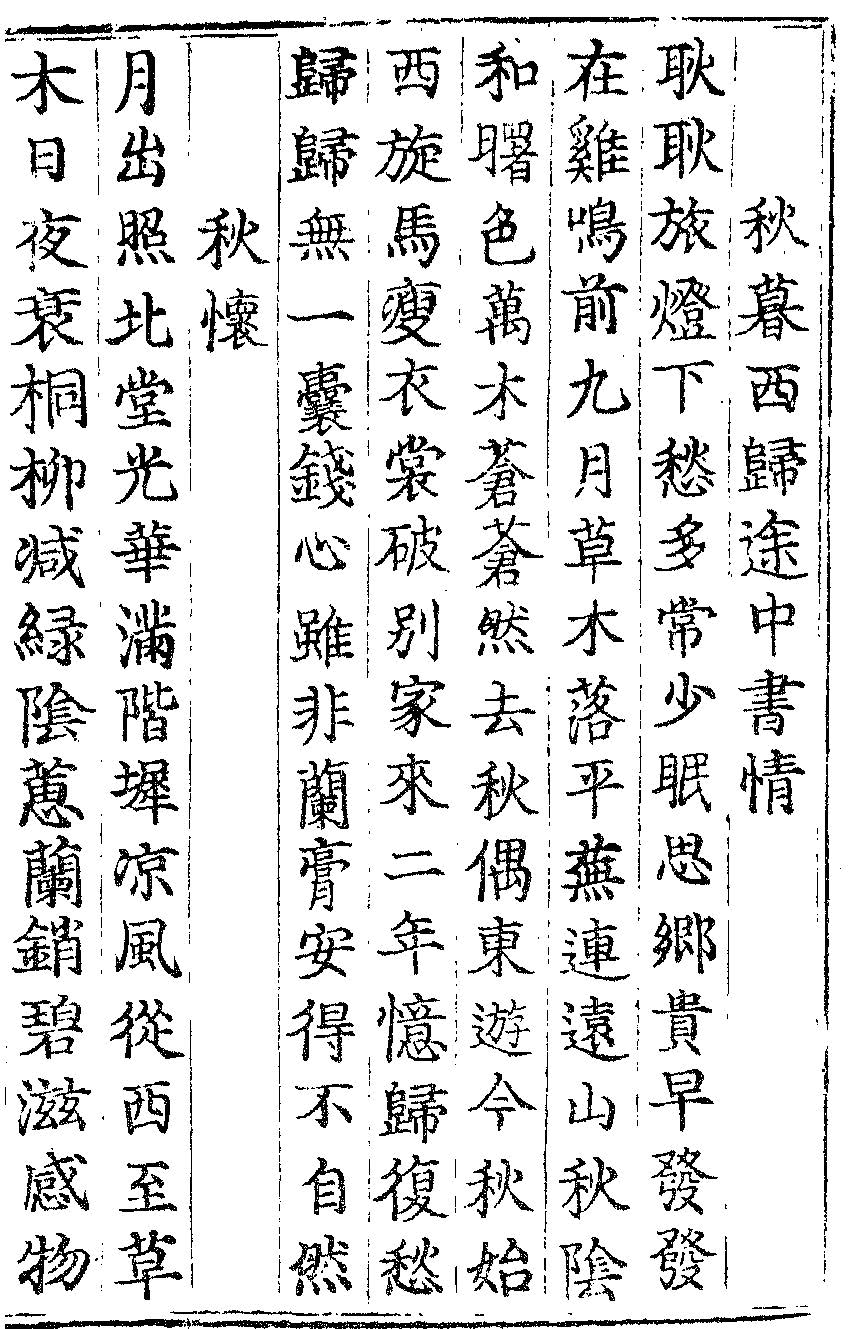 秋暮西歸途中書情
耿耿旅燈下愁多常少眠思郷貴早發發
在雞鳴前九月草木落平蕪連遠山秋陰
和曙色萬木蒼蒼然去秋偶東遊今秋始
西旋馬瘦衣裳破别家來二年憶歸復愁
歸歸無一囊錢心雖非蘭膏安得不自然
秋懷
月出照北堂光華滿階墀凉風從西至草
木日夜衰桐柳减緑陰蕙蘭銷碧滋感物